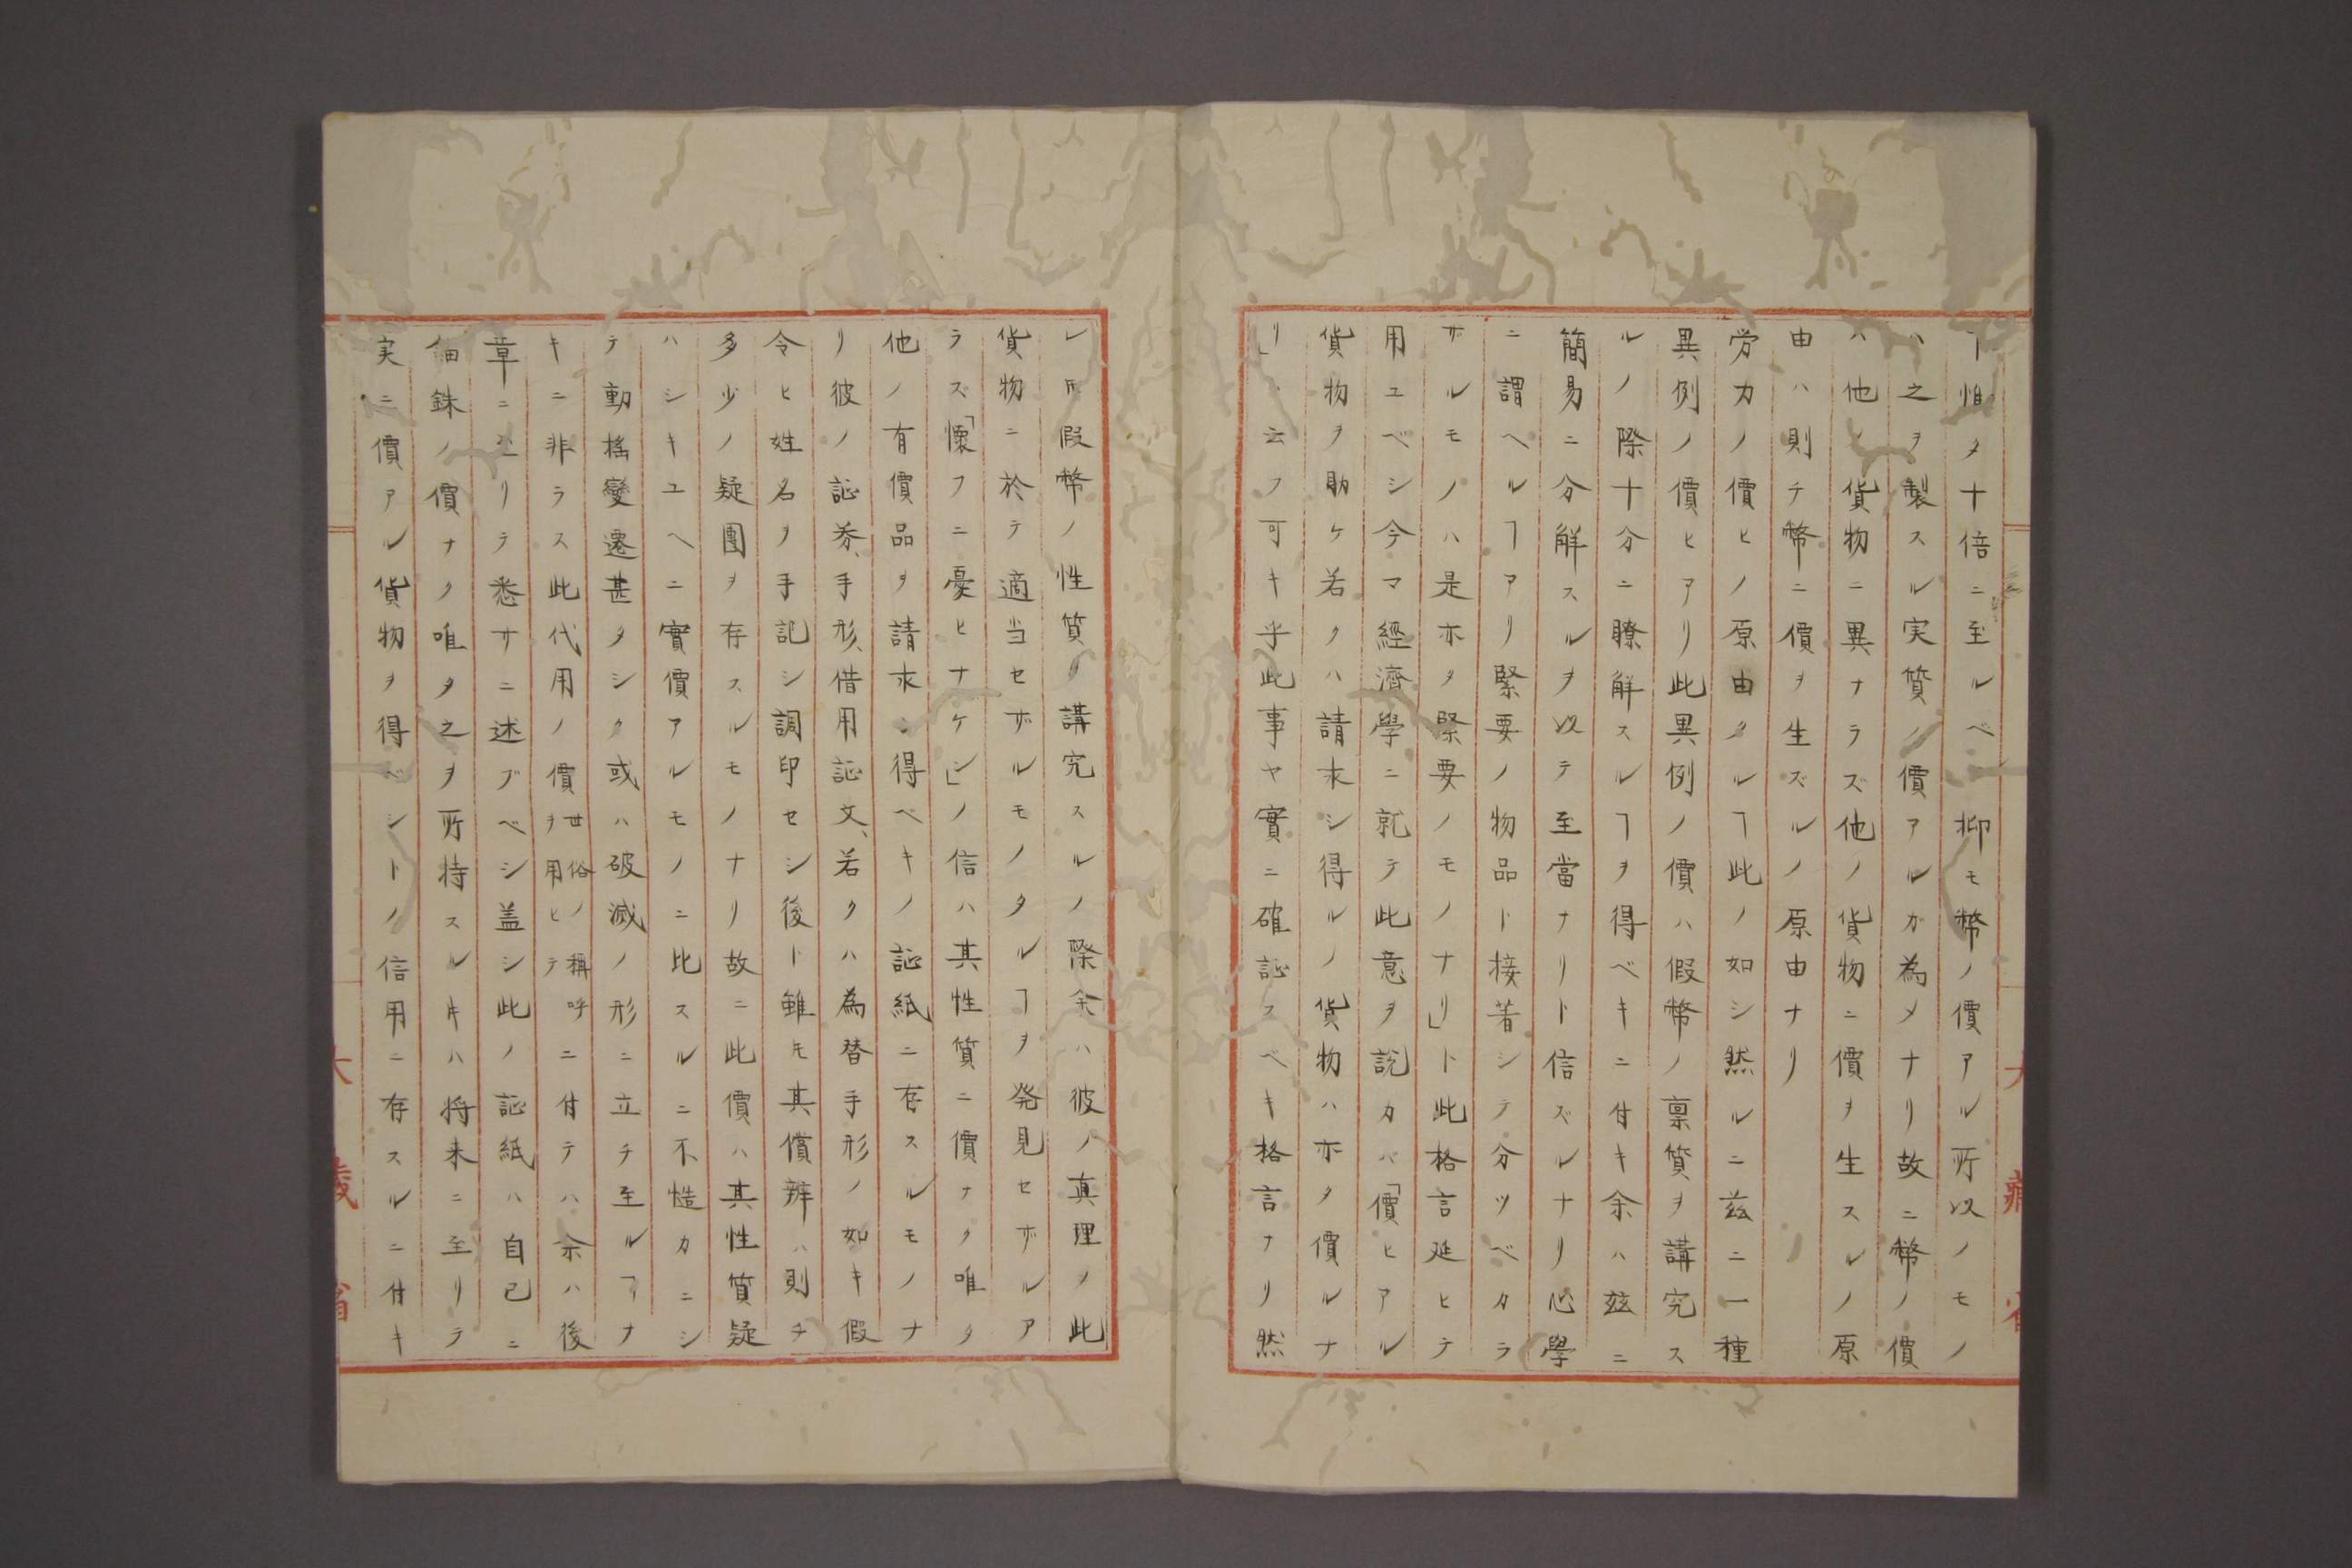 ヿ惟タ十倍ニ至ルベ 抑モ幣ノ價アル所以ノモノ
ハ之ヲ製スル実質ノ價アルガ為メナリ故ニ幣ノ價
ハ他ノ貨物ニ異ナラズ他ノ貨物ニ價ヲ生スルノ原
由ハ則チ幣ニ價ヲ生ズルノ原由ナリ
労力ノ價ヒノ原由タルヿ此ノ如シ然ルニ茲ニ一種
異例ノ價ヒアリ此異例ノ價ハ假幣ノ禀質ヲ講究ス
ルノ際十分ニ瞭解スルヿヲ得ベキニ付キ余ハ茲ニ
簡易ニ分解スルヲ以テ至當ナリト信ズルナリ心學
ニ謂ヘルヿアリ緊要ノ物品ト接着シテ分ツベカラ
ザルモノハ是亦タ緊要ノモノナリ」ト此格言延ヒテ
用ユベシ今マ經濟學ニ就テ此意ヲ説カバ「價ヒアル
貨物ヲ助ケ若クハ請求シ得ルノ貨物ハ亦タ價ルナ
リ」ト云フ可キ乎此事ヤ實ニ確証スベキ格言ナリ然
レ𪜈假幣ノ性質ヲ講究スルノ際余ハ彼ノ真理ノ此
貨物ニ於テ適当セザルモノタルヿヲ発見セザルア
ラズ「懐フニ憂ヒナケン」ノ信ハ其性質ニ價ナク唯タ
他ノ有價品ヲ請求シ得ベキノ証紙ニ存スルモノナ
リ彼ノ証券、手形、借用証文、若クハ為替手形ノ如キ假
令ヒ姓名ヲ手記シ調印セシ後ト雖𪜈其償辨ハ則チ
多少ノ疑團ヲ存スルモノナリ故ニ此價ハ其性質疑
ハシキユヘニ實價アルモノニ比スルニ不慥カニシ
テ動揺變遷甚タシク或ハ破滅ノ形ニ立チ至ルヿナ
キニ非ラス此代用ノ價世俗ノ稱呼ヲ用ヒテニ付テハ余ハ後
章ニ リテ悉サニ述ブベシ盖シ此ノ証紙ハ自己ニ
錙銖ノ價ナク唯タ之ヲ所持スルキハ将来ニ至リテ
実ニ價アル貨物ヲ得ベシトノ信用ニ存スルニ付キ
大藏省
大藏省